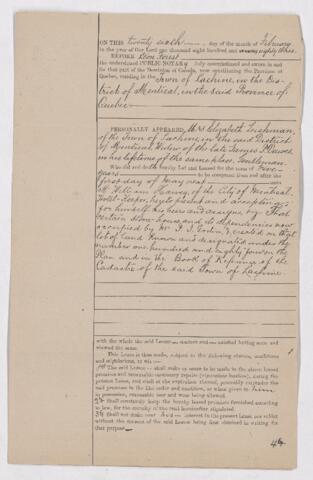 ON THIS twenty sixth day of the month of February
in the year of our Lord one thousand eight hundred and eighty three
BEFORE Léon Forest
the undersigned PUBLIC NOTARY duly commissioned and sworn in and
for that part of the Dominion of Canada, now constituting the Province of
Quebec, residing in the Town of Lachine, in the Dis-
trict of Montreal, in the said Province of
Quebec
PERSONALLY APPEARED Mrs Elizabeth
of the Town of Lachine, in the said District
of Montreal, Widow of the late James P. Dawes
in his lifetime of the same place, Gentleman.
Who did and doth hereby let and leased for the term of Five
years to be computed from and after the
first day of May next
Mr William Harvey, of the City of Montreal,
Hotel-Keeper, hereto present and accepting
for himself his heirs and assigns, viz: That
certain stone house, and its dependencies now
occupied by Mr
lot of land known and designated under the
number one hundred and eighty four on the
Plan and in the Book of Reference of the
Cadastre of the said Town of Lachine.
with the whole the said Lessee declares and satisfied having seen and
viewed the same.
This Lease is thus made, subject to the following clauses, conditions
and stipulations, to wit:—
1st The said Lessor shall make or cause to be made to the above leased
premises and necessary repairs during
the present Lease, and shall at the expiration thereof, peaceably surrender the
said premises in the like order and condition, as when given to him
in possession, reasonable wear and tear being allowed.
2d Shall constantly keep the hereby leased premises furnished according
to law, for the security of the rent hereinafter stipulated.
3d Shall not make over his interest in the present Lease, nor sublet
without the consent of the said Lessor being first obtained in writing for
that purpose